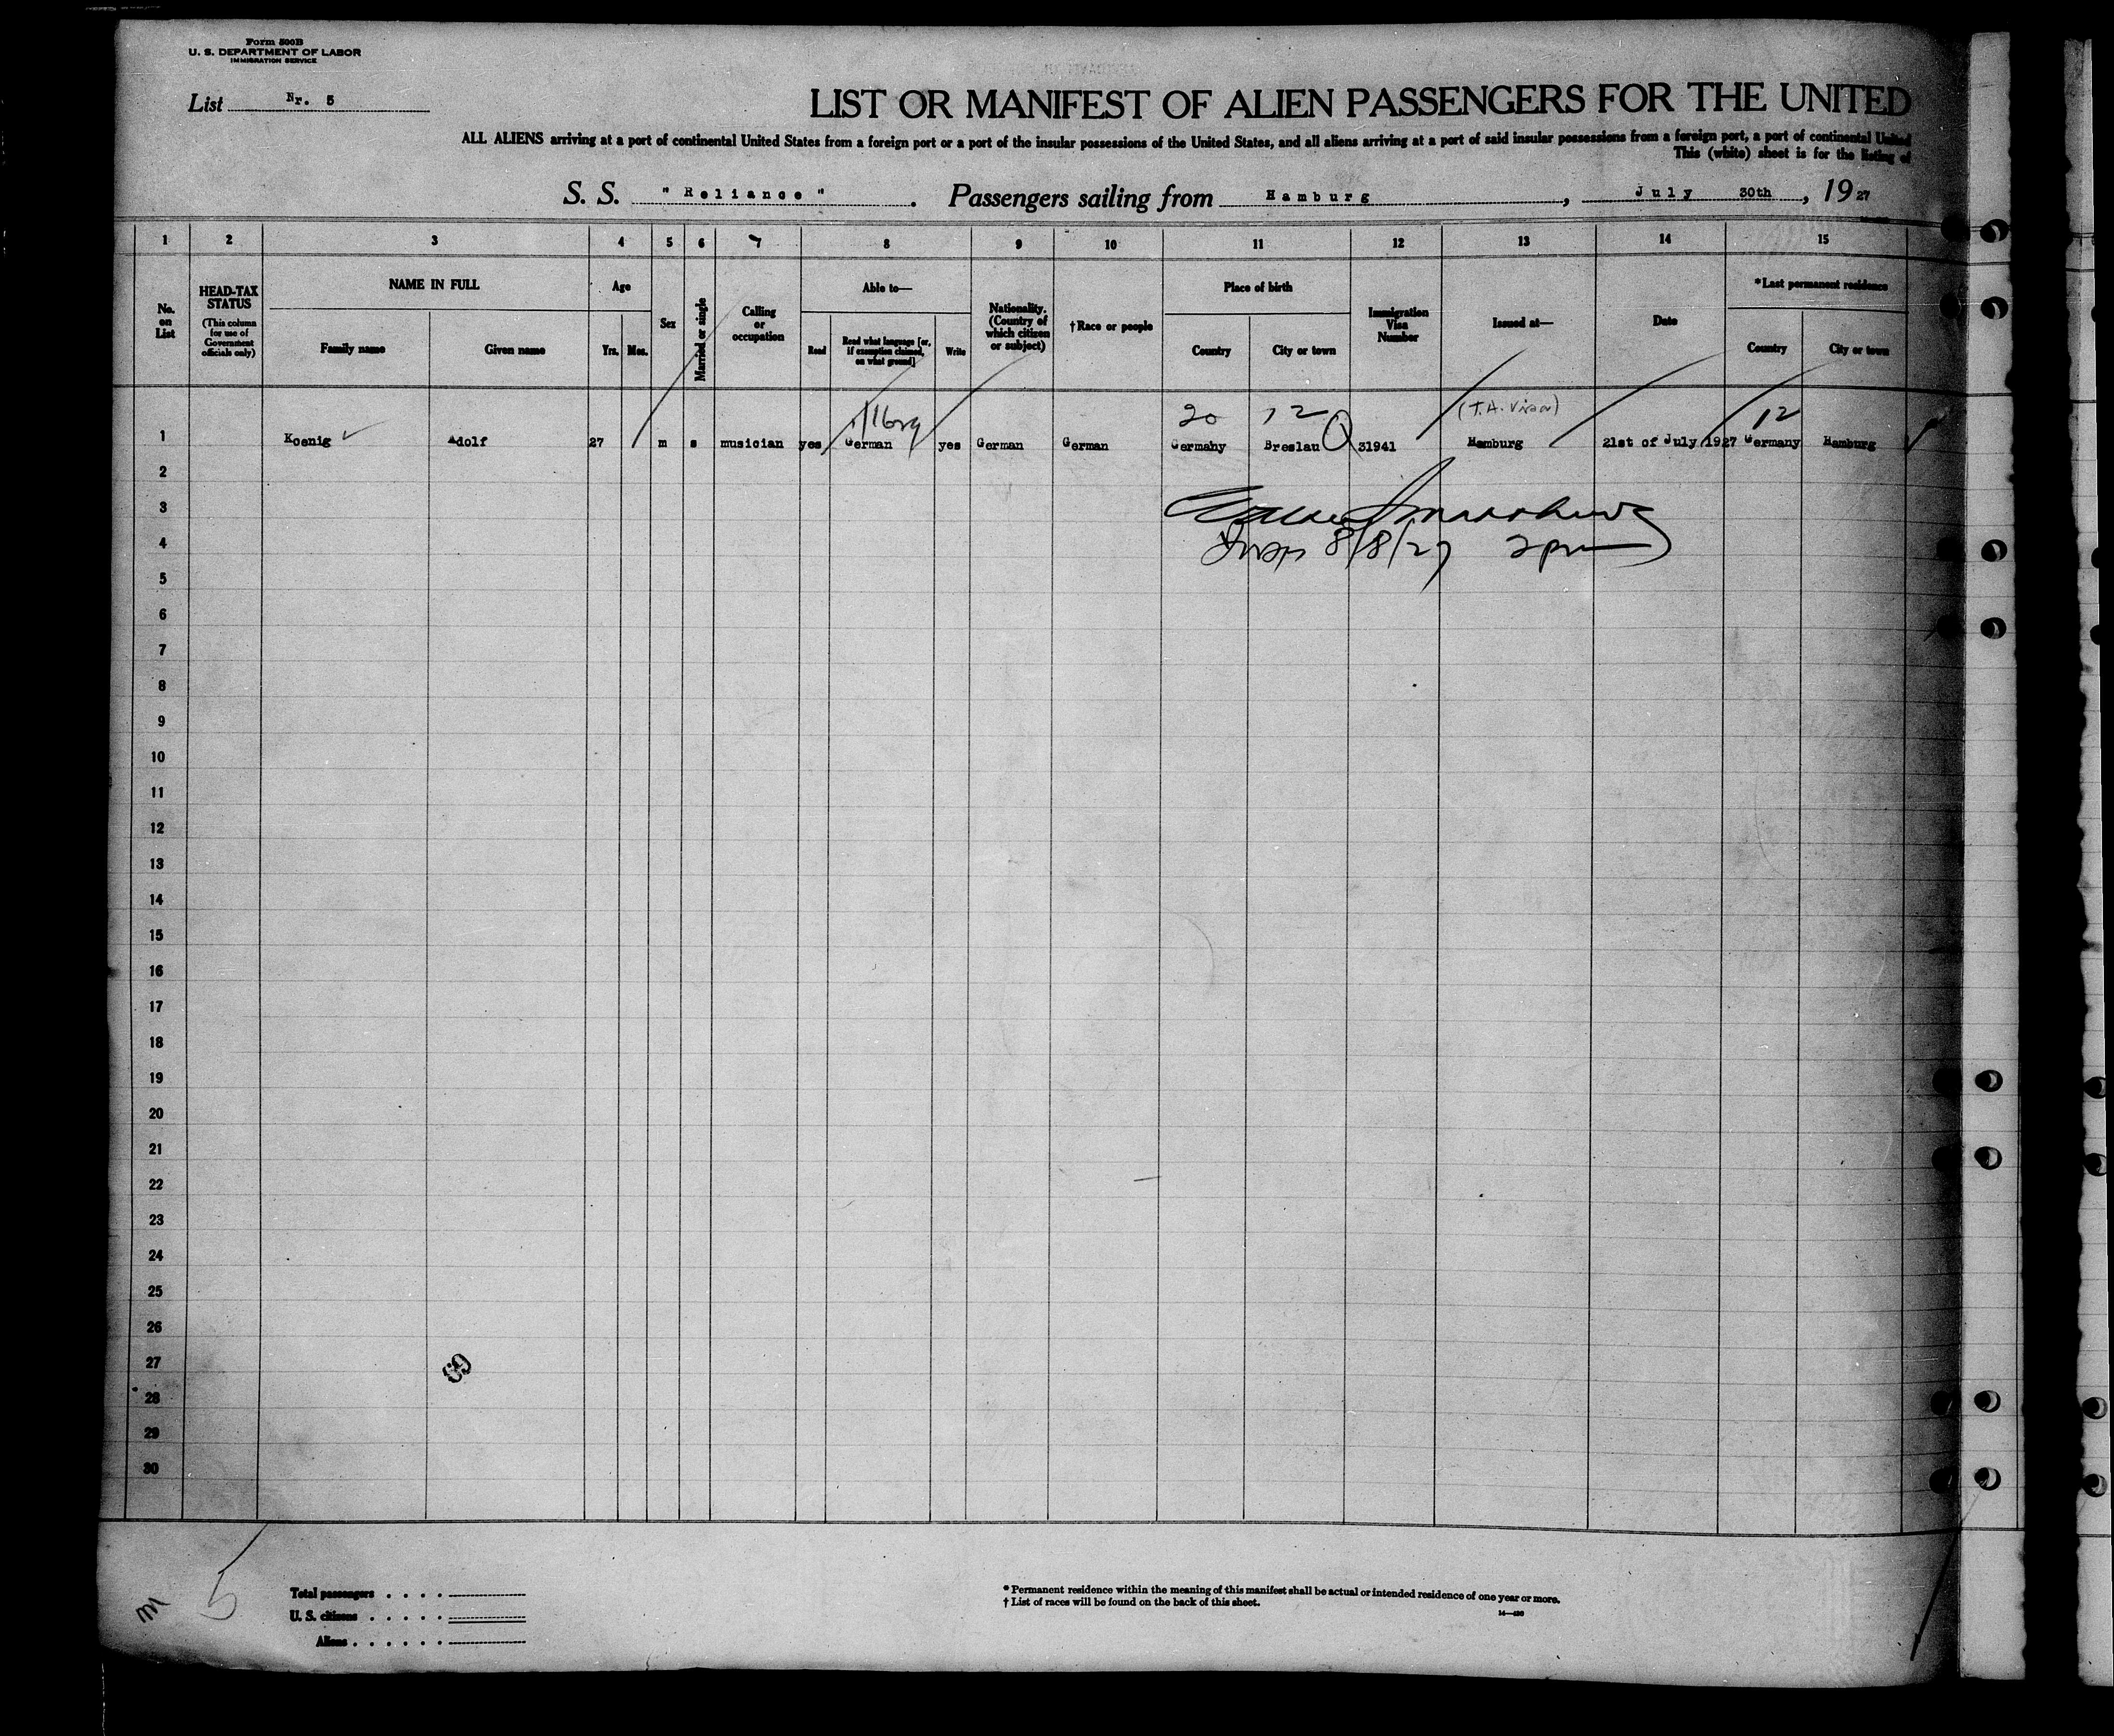 Form 500B
U. S. DEPARTMENT OF LABOR
IMMIGRATION SERVICE
List Nr. 5
LIST OR MANIFEST OF ALIEN PASSENGERS FOR THE UNITED
ALL ALIENS arriving at a port of continental United States from a foreign port or a port of the insular possessions of the United States, and all aliens arriving at a port of said insular possessions from a foreign port, a port of continental United
This (white) sheet is for the listing of
S. S. "Reliance". Passengers sailing from Hamburg, July 30th, 1927
1 2 3 4 5 6 7 8 9 10 11 12 13 14 15
No. on List
HEAD-TAX STATUS
(This column for use of Government officials only)
NAME IN FULL
Family name
Given name
Age
Yrs. Mos.
Sex
Married or single
Calling or occupation
Able to—
Read
Read what language [or, if exemption claimed, on what ground]
Write
Nationality. (Country of which citizen or subject)
†Race or people
Place of birth
Country
City or town
Immigration Visa Number
Issued at—
Date
*Last permanent residence
Country
City or town
20 12 (T.A. Visa) 12
1 Koenig Adolf 27 m s musician yes German yes German German Germany Breslau 31941 Hamburg 21st of July 1927 Germany Hamburg
2
3
4 8/8/27 2pm
5
6
7
8
9
10
11
12
13
14
15
16
17
18
19
20
21
22
23
24
25
26
27
69
28
29
30
5
Total passengers . . . .
U. S. citizens . . . . .
Aliens . . . . . .
* Permanent residence within the meaning of this manifest shall be actual or intended residence of one year or more.
† List of races will be found on the back of this sheet.